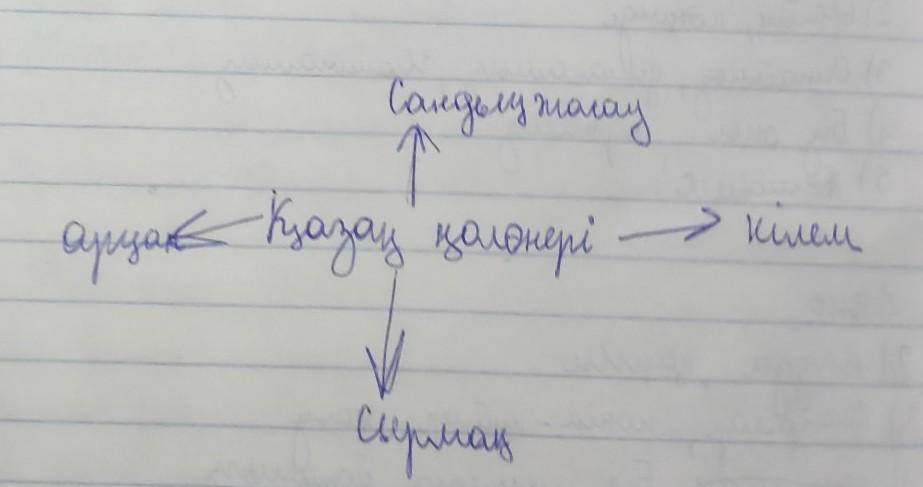 Сандықжасау
арқан Қазақ қолөнері кілем
Сырмақ